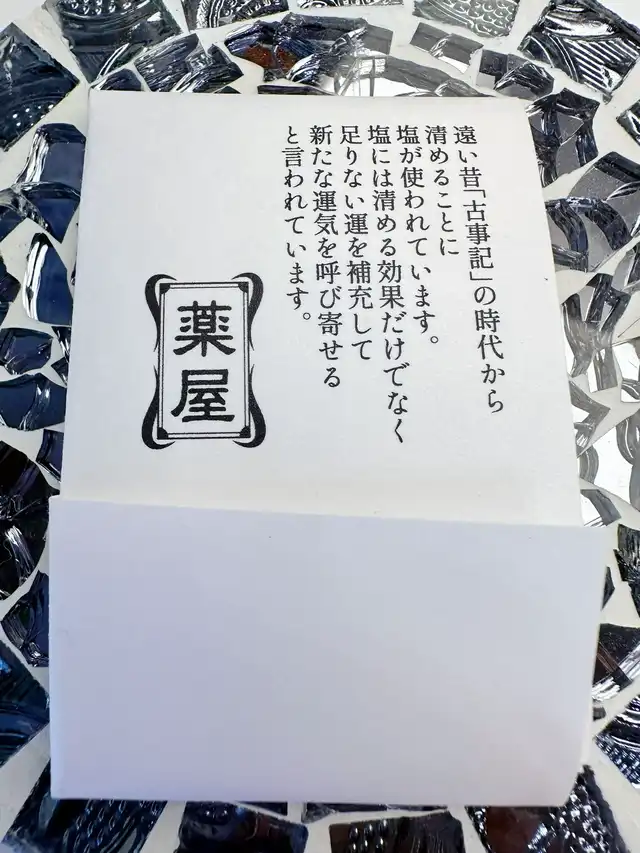 遠い昔「古事記」の時代から
清めることに
塩が使われています。
塩には清める効果だけでなく
足りない運を補充して
新たな運気を呼び寄せる
と言われています。
薬屋